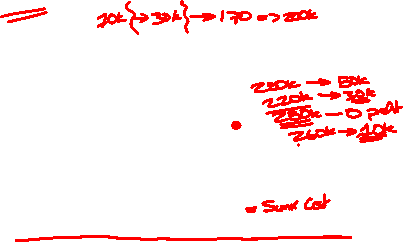 20k {→ 30k} → 170 => 200k
250k → 50k
220k → 30k
250k — 0 profit
260k → 10k
= Sunk Cost